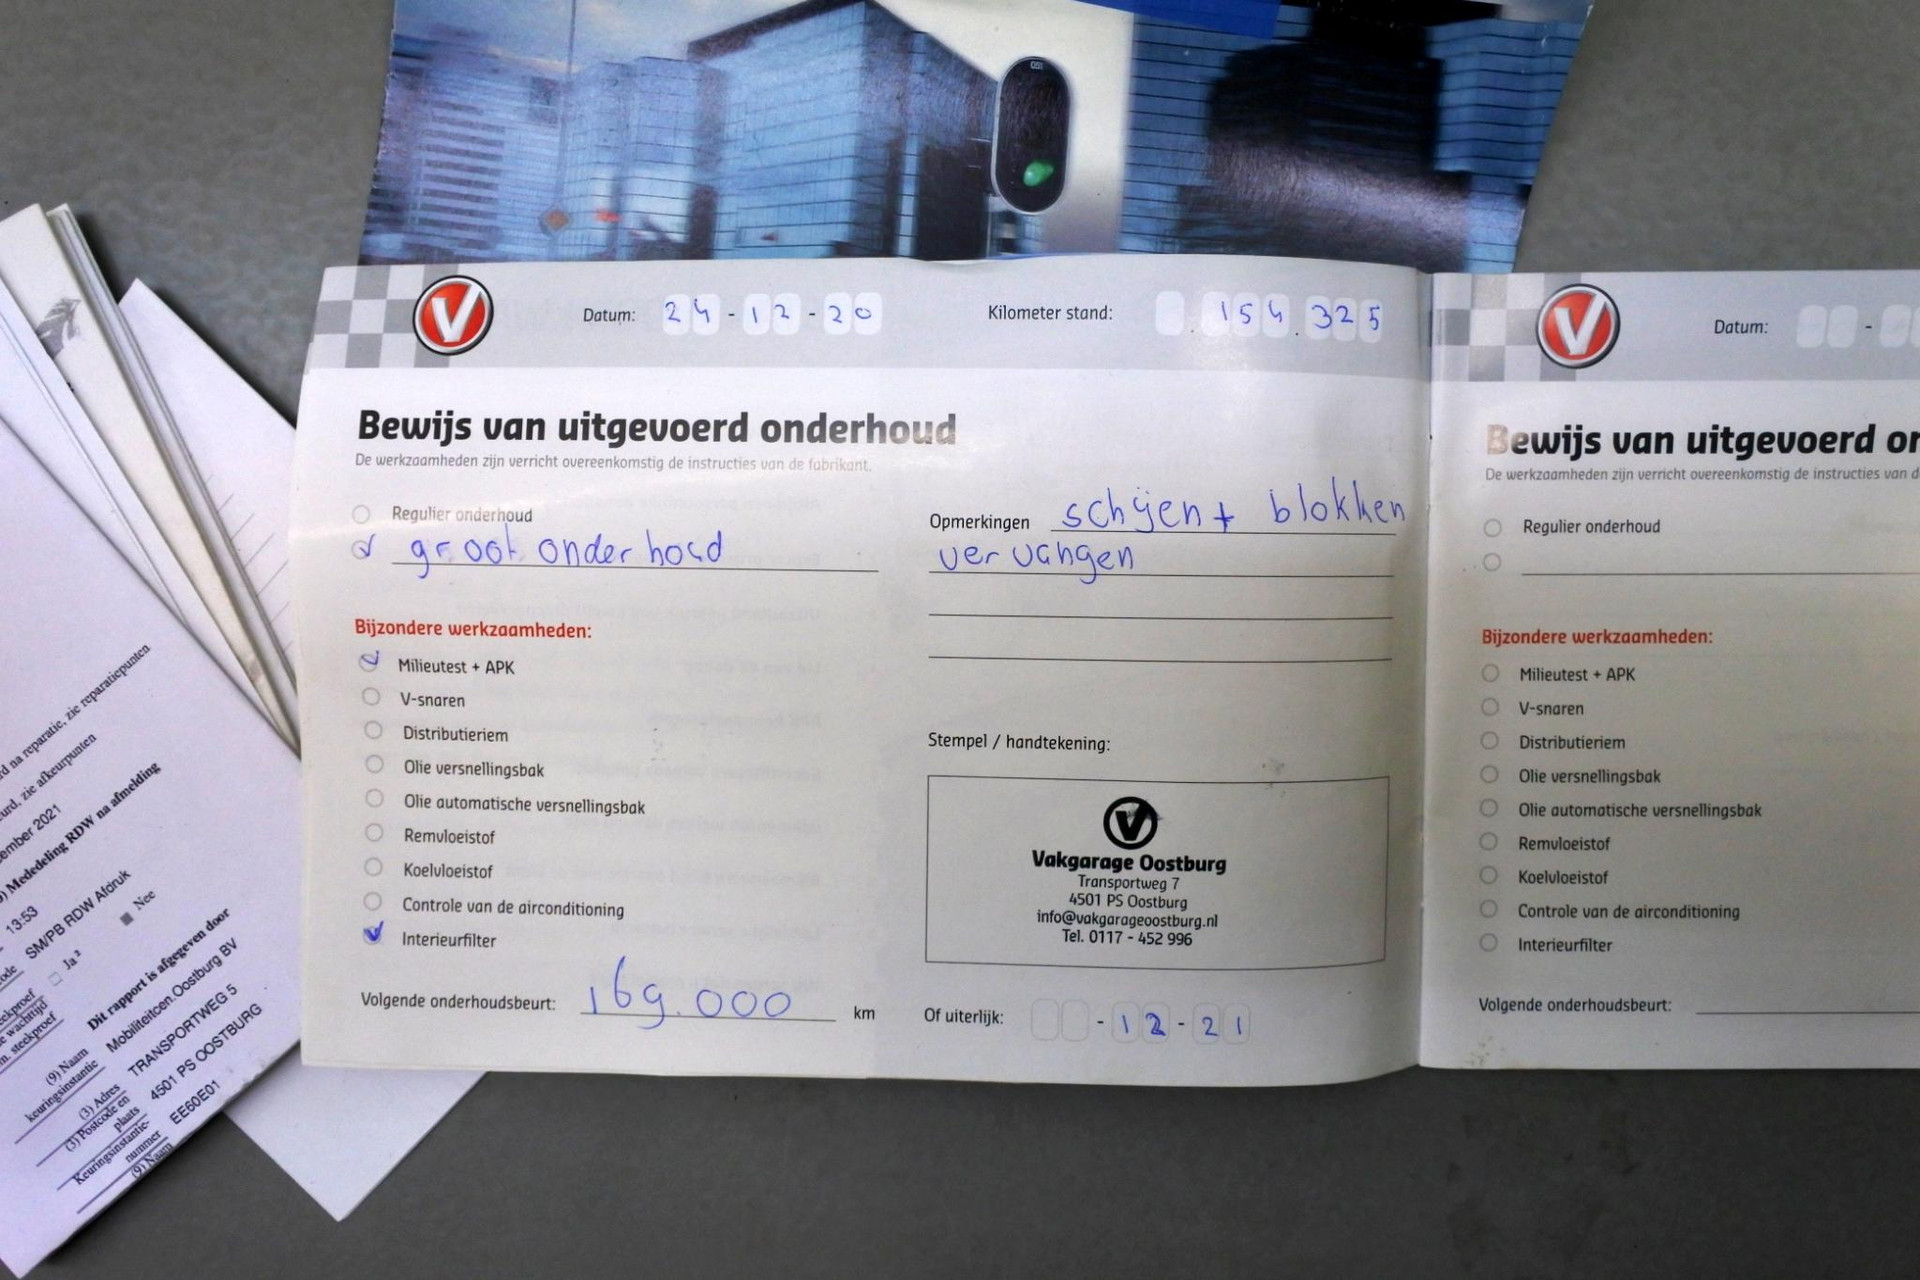 Datum: 24-12-20
Kilometer stand: 154.325
Bewijs van uitgevoerd onderhoud
De werkzaamheden zijn verricht overeenkomstig de instructies van de fabrikant.
Regulier onderhoud
groot onderhoud
Opmerkingen schijen + blokken
vervangen
Bijzondere werkzaamheden:
Milieutest + APK
V-snaren
Distributieriem
Olie versnellingsbak
Olie automatische versnellingsbak
Remvloeistof
Koelvloeistof
Controle van de airconditioning
Interieurfilter
Volgende onderhoudsbeurt: 169.000 km
Stempel / handtekening:
V
Vakgarage Oostburg
Transportweg 7
4501 PS Oostburg
info@vakgarageoostburg.nl
Tel. 0117 - 452 996
Of uiterlijk: -12-21
V
Datum: -
Bewijs van uitgevoerd on
De werkzaamheden zijn verricht overeenkomstig de instructies van d
Regulier onderhoud
Bijzondere werkzaamheden:
Milieutest + APK
V-snaren
Distributieriem
Olie versnellingsbak
Olie automatische versnellingsbak
Remvloeistof
Koelvloeistof
Controle van de airconditioning
Interieurfilter
Volgende onderhoudsbeurt:
rd na reparatie, zie reparatiepunten
urd, zie afkeurpunten
ember 2021
) Mededeling RDW na afmelding
13:53
SM/PB RDW Afdruk
Ja ²
Nee
Dit rapport is afgegeven door
(9) Naam keuringsinstantie Mobiliteitcen.Oostburg BV
(3) Adres TRANSPORTWEG 5
(3) Postcode en plaats 4501 PS OOSTBURG
Keuringsinstantie-nummer EE60E01
(9) Naam